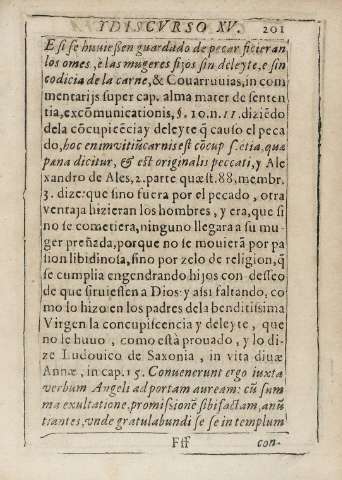 Y DISCVRSO XV. 201
E si se huuiessen guardado de pecar ficieran
los omes, è las mugeres fijos sin deleyte, e sin
codicia de la carne, & Couarruuias, in com
mentarijs super cap. alma mater de senten
tia, excōmunicationis, §. 10. n. 11. diziēdo
de la cōcupicēcia y deleyte q̃ causo el peca
do, hoc enim vitiū carnis est cōcup s. etia, quæ
pœna dicitur, & est originalis peccati, y Ale
xandro de Ales, 2. parte quæst. 88, membr.
3. dize: que sino fuera por el pecado, otra
ventaja hizieran los hombres, y era, que si
no se cometiera, ninguno llegara a su mu-
ger preñada, porque no se mouierã por pa
sion libidinosa, sino por zelo de religion, q̃
se cumplia engendrando hijos con desseo
de que siruiessen a Dios: y assi faltando, co
mo lo hizo en los padres de la benditissima
Virgen la concupiscencia y deleyte, que
no le huuo, como està prouado, y lo di-
ze Ludouico de Saxonia, in vita diuæ
Annæ, in cap. 15. Conuenerunt ergo iuxta
verbum Angeli ad portam auream: cū sum
ma exultatione, promissionē sibi factam, anū
tiantes, vnde gratulabundi se se in templum
Fff con-